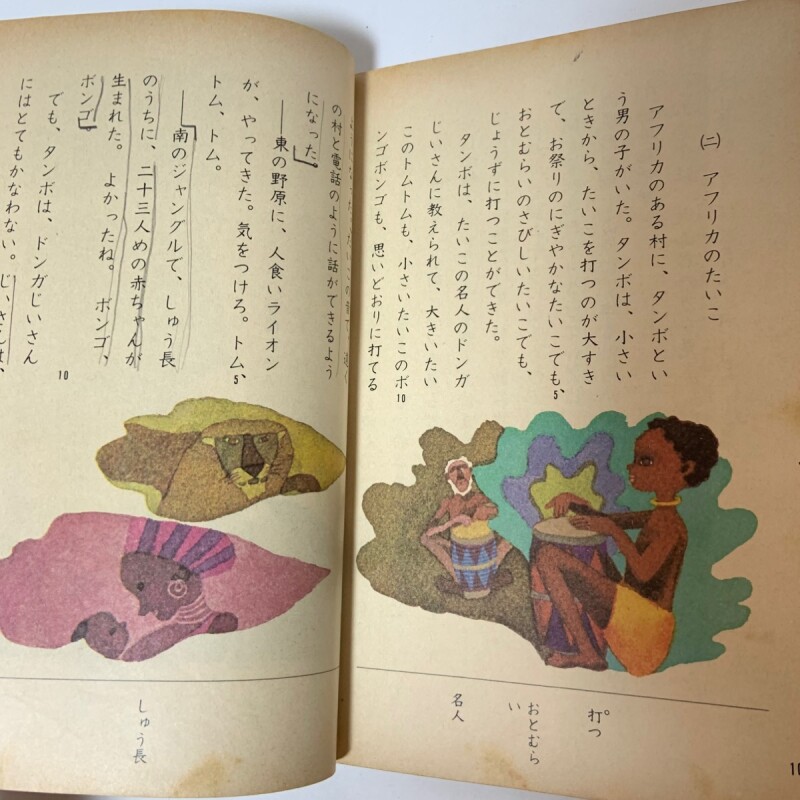 ㈡ アフリカのたいこ
アフリカのある村に、タンボとい
う男の子がいた。タンボは、小さい
ときから、たいこを打つのが大すき
で、お祭りのにぎやかなたいこでも、
5
おとむらいのさびしいたいこでも、
じょうずに打つことができた。
タンボは、たいこの名人のドンガ
じいさんに教えられて、大きいたい
このトムトムも、小さいたいこのボ
10
ンゴボンゴも、思いどおりに打てる
打つ
おとむら
い
名人
10
の村と電話のように話ができるよう
になった。
――東の野原に、人食いライオン
が、やってきた。気をつけろ。トム、
5
トム、トム。
――南のジャングルで、しゅう長
のうちに、二十三人めの赤ちゃんが
生まれた。よかったね。ボンゴ、
ボンゴ。
でも、タンボは、ドンガじいさん
10
にはとてもかなわない。じいさんは、
しゅう長